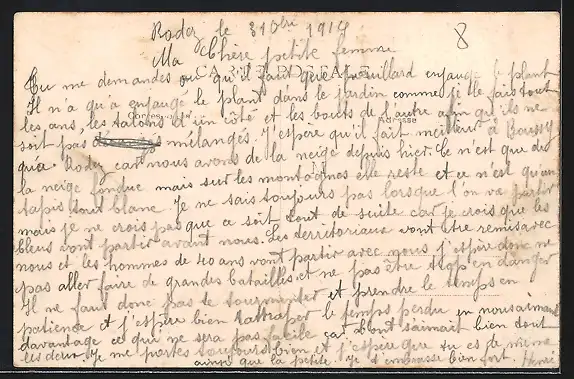 Rodez le 31 Xbre 1914
8
Ma Chère petite femme
CARTE POSTALE
Correspondance
Adresse
Tu me demandes où qu'il faut que Fouillard enjauge le plant
Il n'a qu'a enjaugé le plant dans le jardin comme je le fais tout
les ans, les talons d'un côté et les bouts de l'autre afin qu'ils ne
soit pas mélangés. J'espère qu'il fait meilleur à Boussy
qu'a Rodez car nous avons de la neige depuis hier. Ce n'est que de
la neige fondue mais sur les montagnes elle reste et ce n'est qu'un
tapis tout blanc. Je ne sais toujours pas lorsque l'on va partir
mais je ne crois pas que ce soit tout de suite car je crois que les
bleus vont partir avant nous. Les territoriaux vont être remis avec
nous et les hommes de 40 ans vont partir avec nous j'espère donc ne
pas aller faire de grandes batailles et ne pas être trop en danger
Il ne faut donc pas te tourmenter et prendre le temps en
patience et j'espère bien rattraper le temps perdu en nous aimant
davantage ce qui ne sera pas facile car l'on s'aimait bien tout
les deux. Je me portes toujours bien et j'espère que tu es de même
ainsi que la petite. Je t'embrasse bien fort. Henri